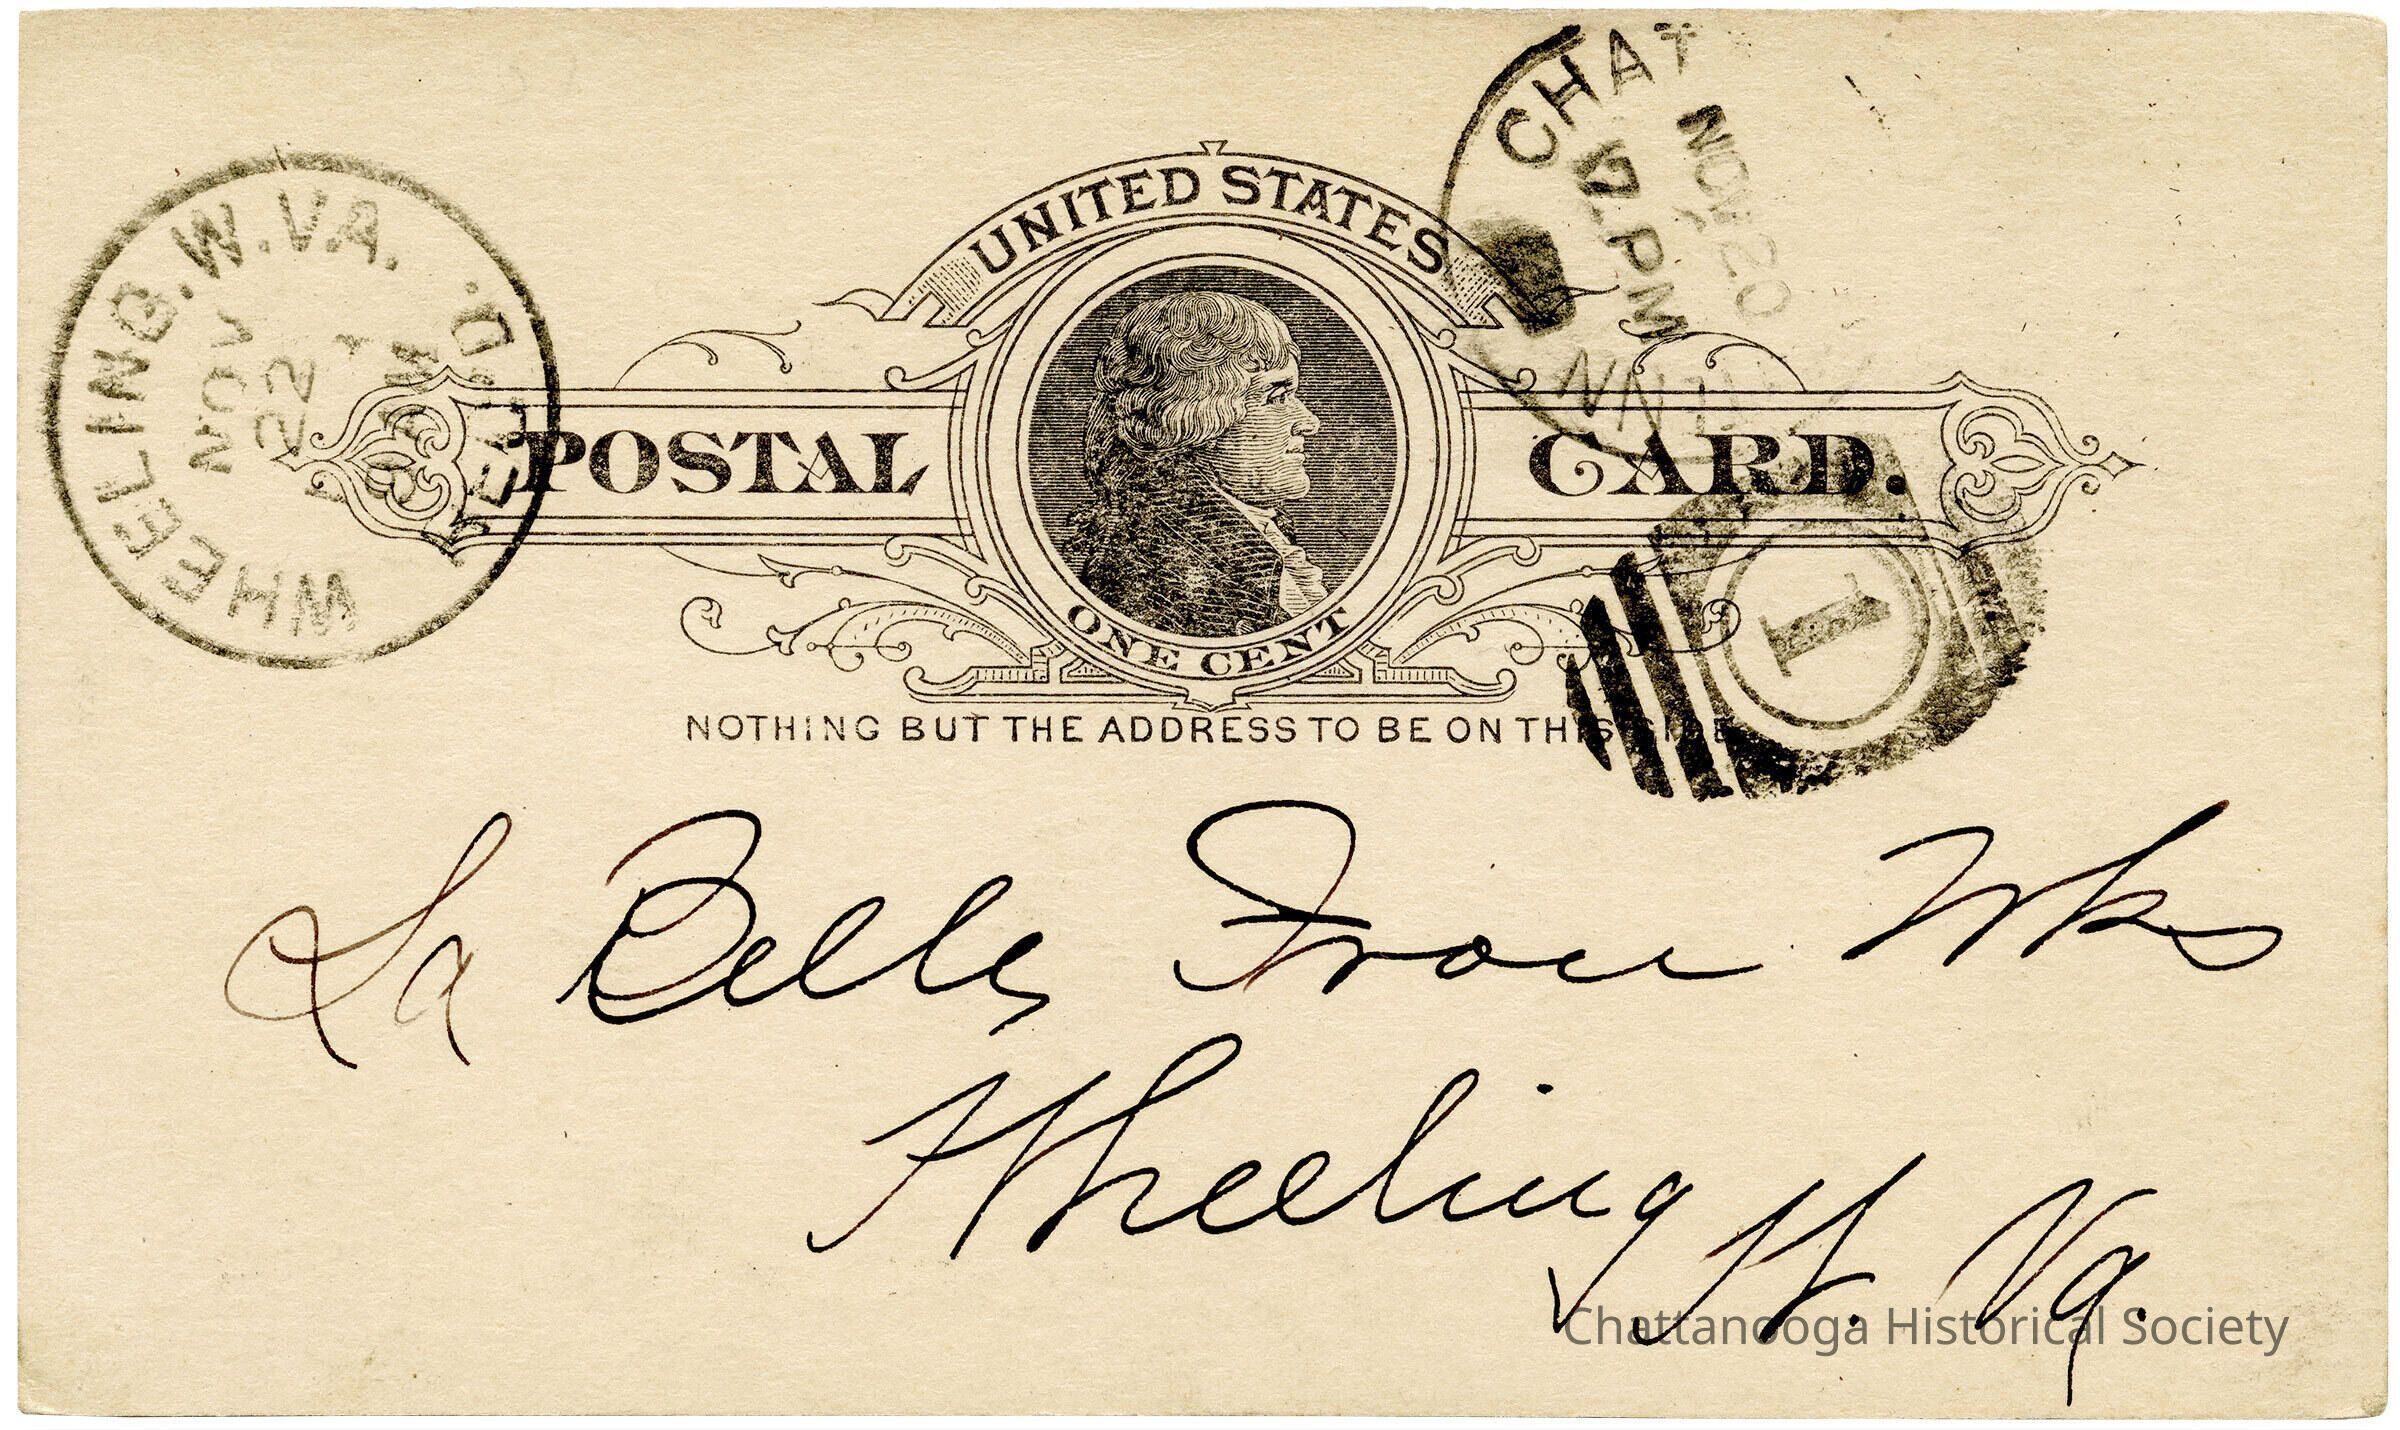 CHAT
NOV 20
7 PM
NN
WHEELING.W.VA.
NOV
22
AM
REC'D.
UNITED STATES
POSTAL CARD.
ONE CENT
1
NOTHING BUT THE ADDRESS TO BE ON THIS SIDE
La Belle Iron Wks
Wheeling
W. Va.
Chattanooga Historical Society